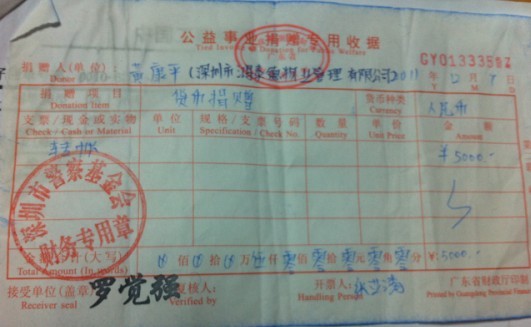 公益事业捐赠专用收据
GY01333592
捐赠人(单位): 黄康平 (深圳市 管理有限公司) 2011 年 12 月 7 日
Donor Y M D
捐赠项目 货币捐赠 货币种类 人民币
Donation Item Currency
支票/现金或实物 单位 规格/支票号码 数量 单价 金额
Check / Cash or Material Unit Specification / Check No. Quantity Unit Price Amount
¥5000.-
深圳市警察基金会
财务专用章
金额合计(大写) 佰 拾 万 伍 仟 零 佰 零 拾 零 元 零 角 零 分 ¥:5000.-
Total Amount (In words)
接受单位(盖章) 罗觉强 复核人: 开票人: 广东省财政厅印制
Receiver seal Verified by Handling Person Printed by Guangdong Provincial Finance